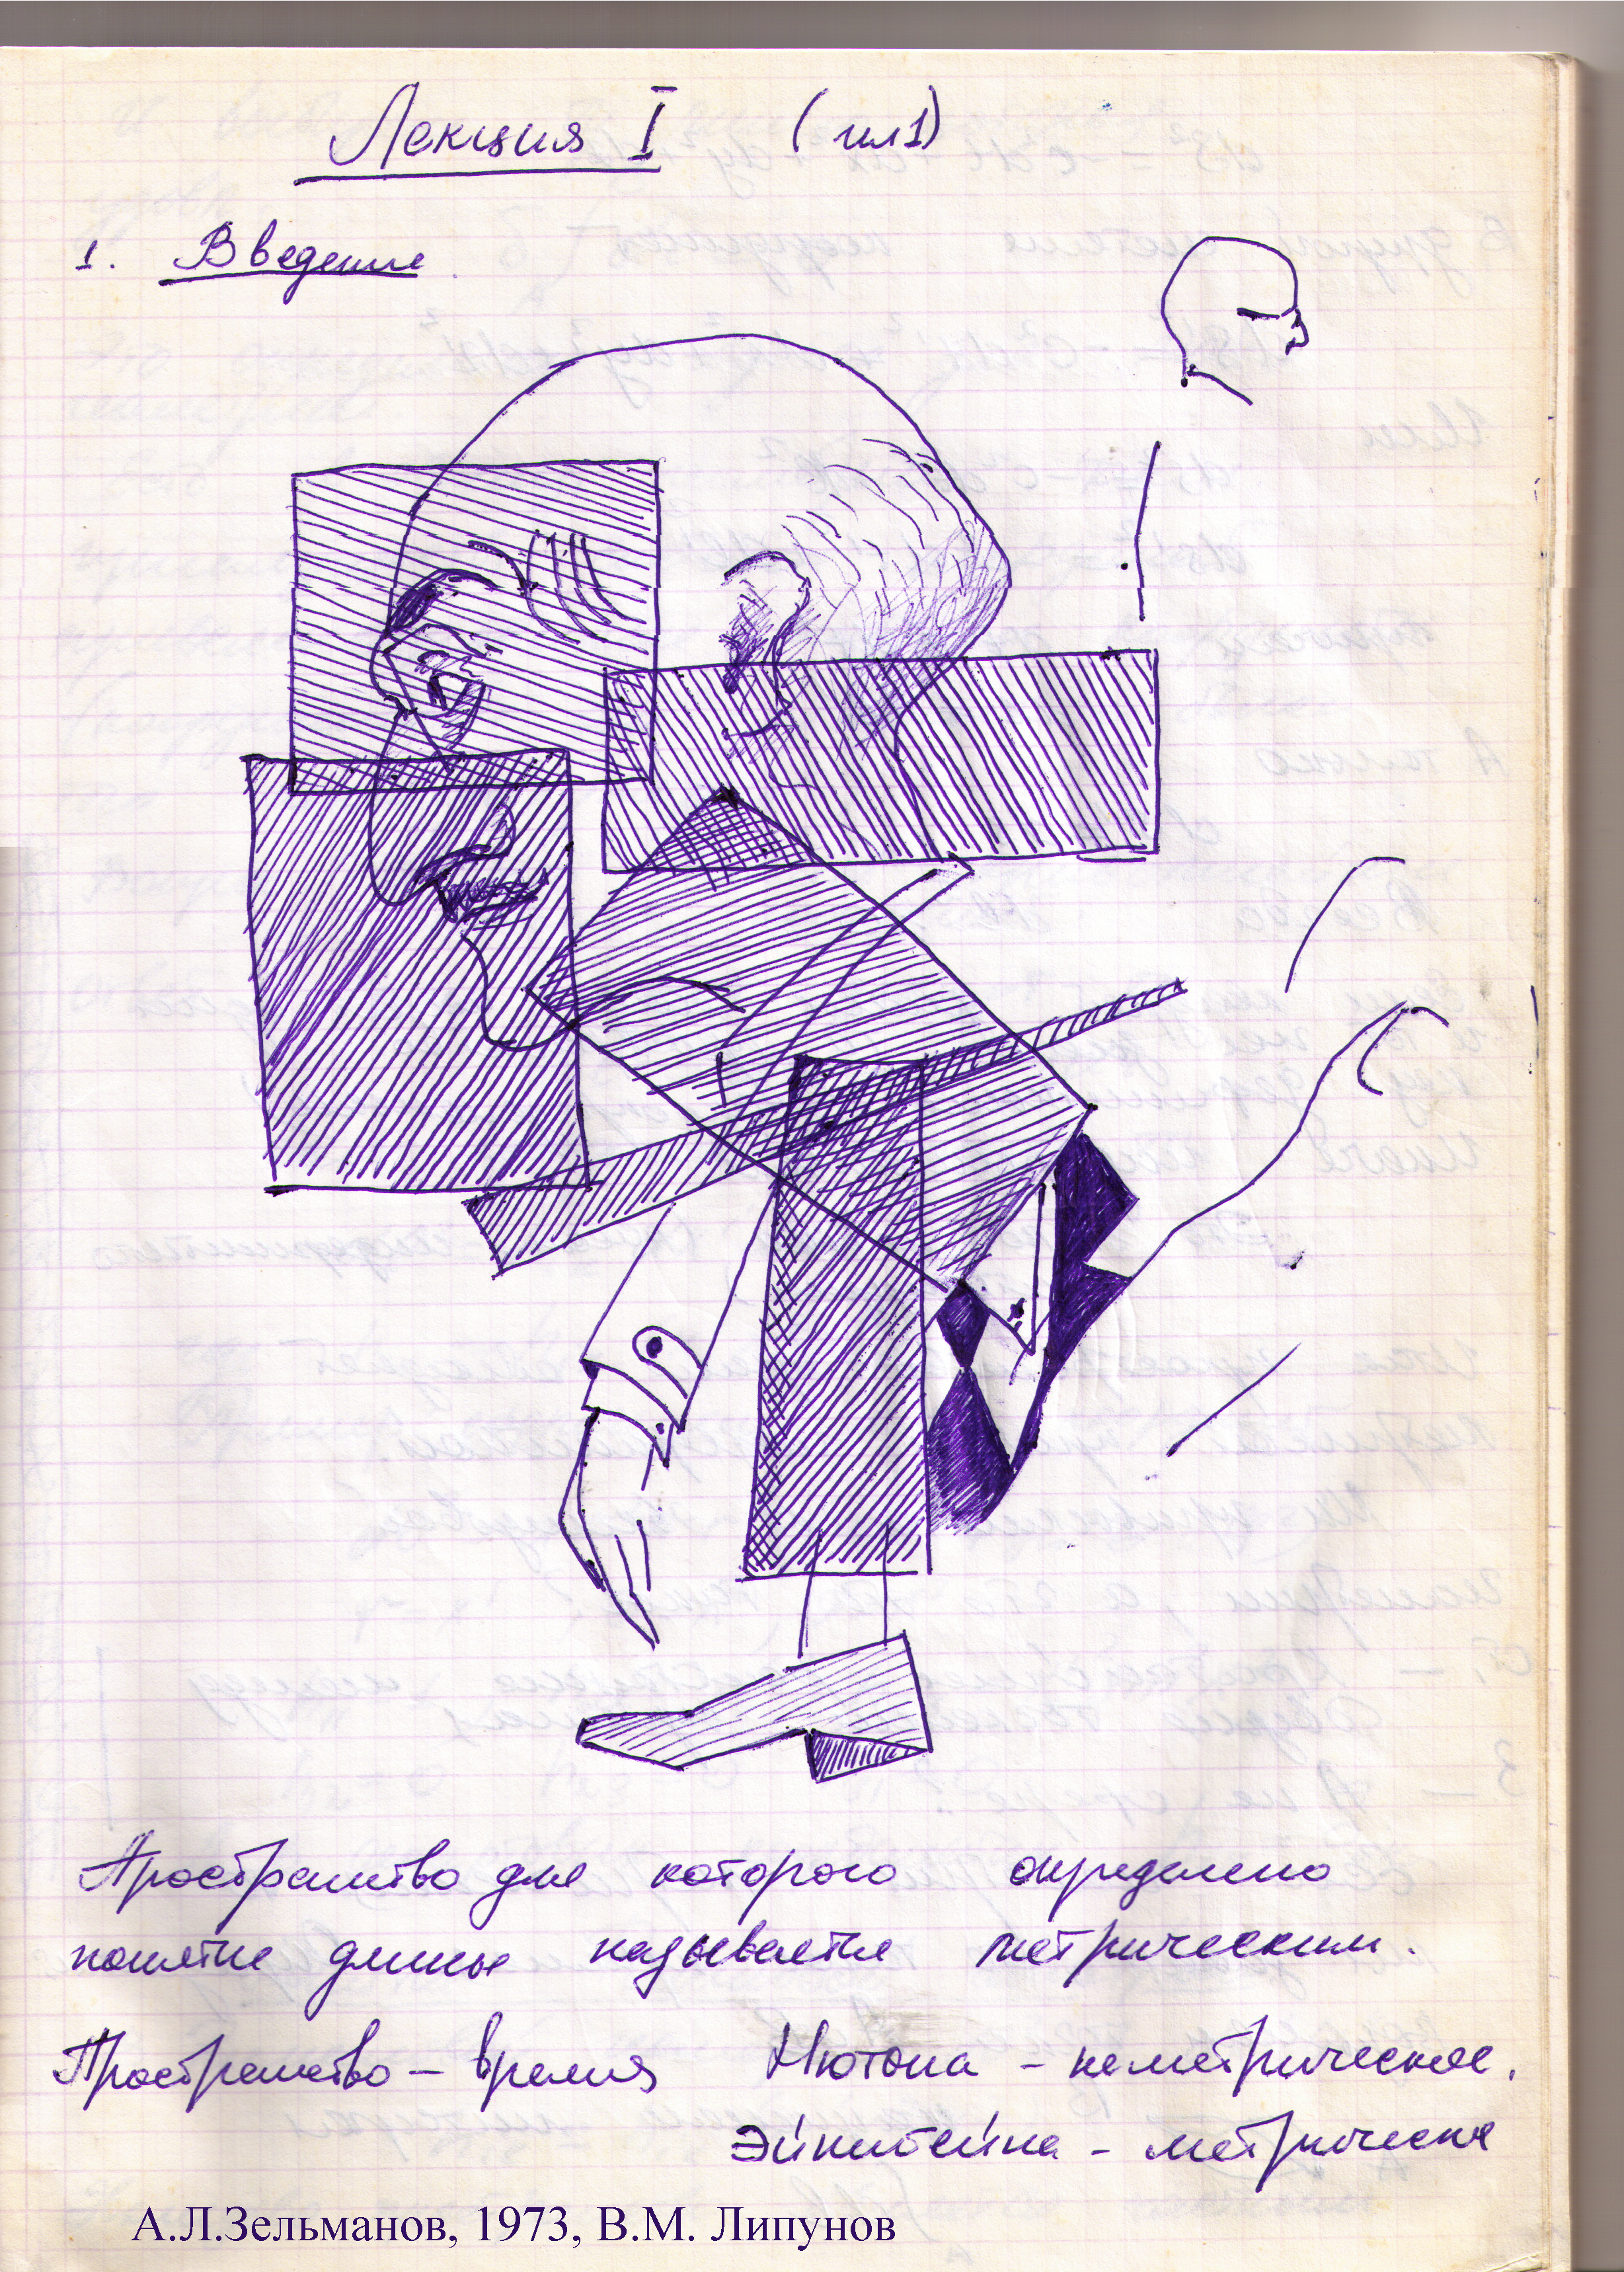 Лекция I (ил 1)
1. Введение
Пространство для которого определено
понятие длины называется метрическим.
Пространство – время Ньютона – неметрическое.
Эйнштейна – метрическое
А.Л.Зельманов, 1973, В.М. Липунов